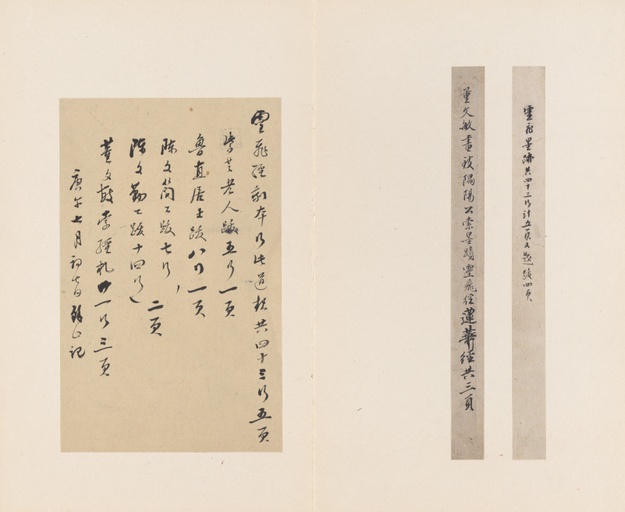 靈飛墨蹟共四十三行計五頁又題跋四頁
董文敏畫公索墨蹟靈飛經蓮華經共三頁
靈飛經刻本此共四十三行五頁
老人跋五行一頁
魯直居士跋八行一頁
陈文简公跋七行
二頁
陈文勤公跋十四行
董文敏索經札廿一行三頁
庚午七月初七日記